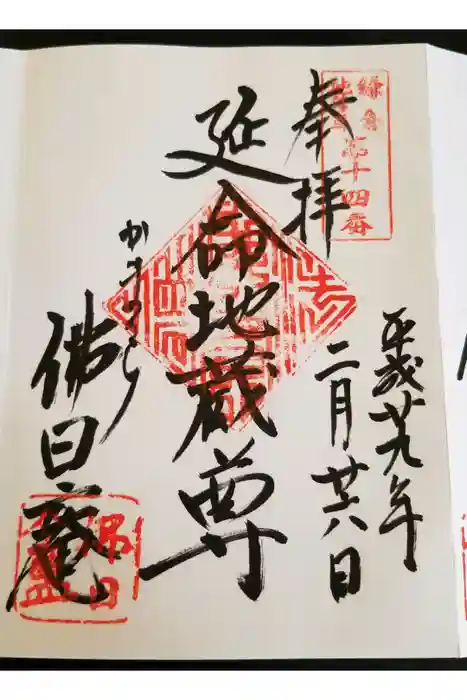 鎌倉
第十四番
奉拝
平成廿九年
二月廿八日
延命地蔵尊
かまくら
佛日庵
佛日